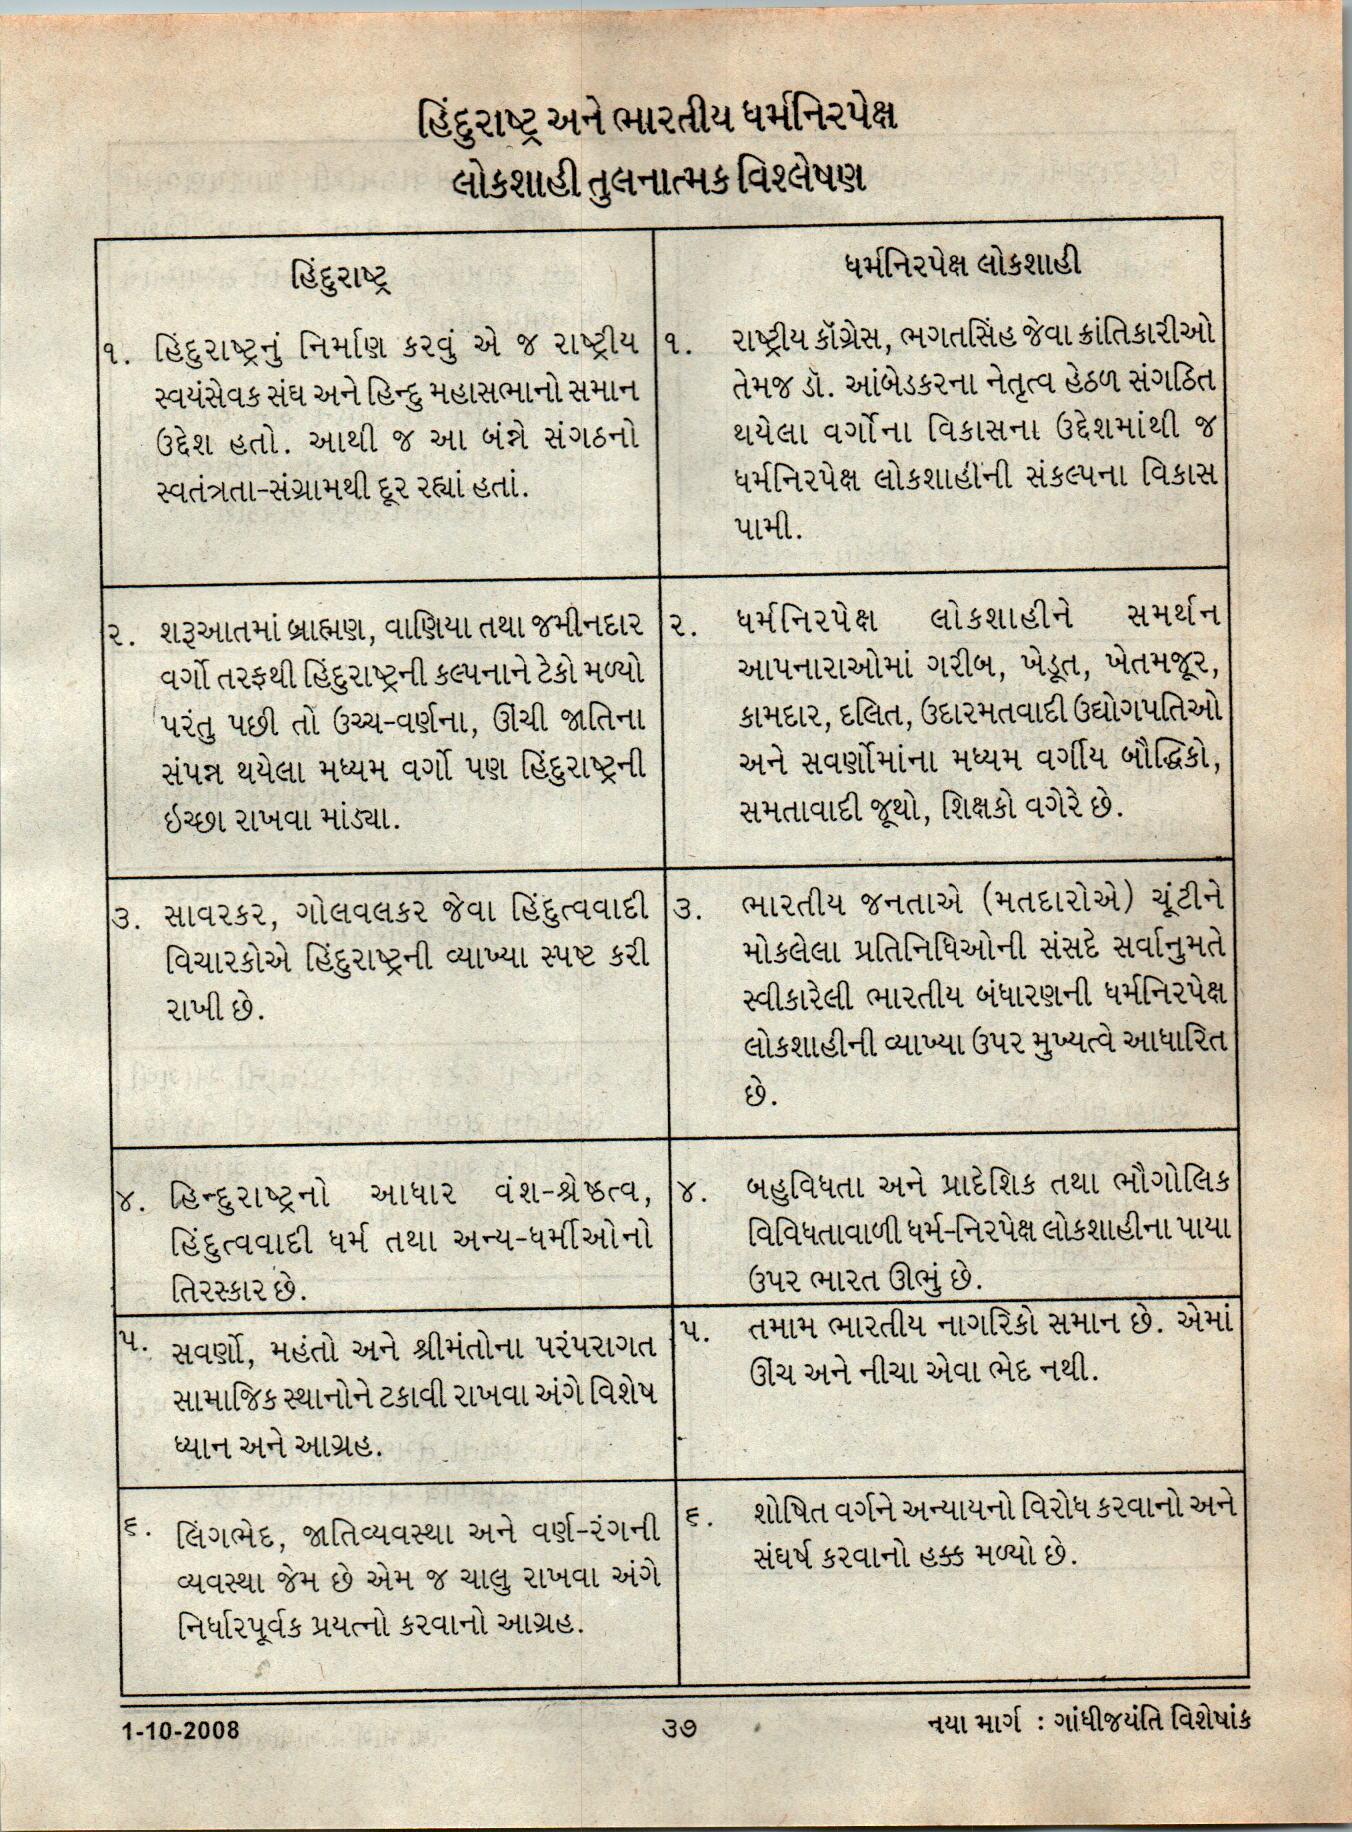 હિંદુરાષ્ટ્ર અને ભારતીય ધર્મનિરપેક્ષ
લોકશાહી તુલનાત્મક વિશ્લેષણ
હિંદુરાષ્ટ્ર
૧. હિંદુરાષ્ટ્રનું નિર્માણ કરવું એ જ રાષ્ટ્રીય
સ્વયંસેવક સંઘ અને હિન્દુ મહાસભાનો સમાન
ઉદ્દેશ હતો. આથી જ આ બંન્ને સંગઠનો
સ્વતંત્રતા-સંગ્રામથી દૂર રહ્યાં હતાં.
ધર્મનિરપેક્ષ લોકશાહી
૧. રાષ્ટ્રીય કૉંગ્રેસ, ભગતસિંહ જેવા ક્રાંતિકારીઓ
તેમજ ડૉ. આંબેડકરના નેતૃત્વ હેઠળ સંગઠિત
થયેલા વર્ગોના વિકાસના ઉદ્દેશમાંથી જ
ધર્મનિરપેક્ષ લોકશાહીની સંકલ્પના વિકાસ
પામી.
૨. શરૂઆતમાં બ્રાહ્મણ, વાણિયા તથા જમીનદાર
વર્ગો તરફથી હિંદુરાષ્ટ્રની કલ્પનાને ટેકો મળ્યો
પરંતુ પછી તો ઉચ્ચ-વર્ણના, ઊંચી જાતિના
સંપન્ન થયેલા મધ્યમ વર્ગો પણ હિંદુરાષ્ટ્રની
ઇચ્છા રાખવા માંડ્યા.
૨. ધર્મનિરપેક્ષ લોકશાહીને સમર્થન
આપનારાઓમાં ગરીબ, ખેડૂત, ખેતમજૂર,
કામદાર, દલિત, ઉદારમતવાદી ઉદ્યોગપતિઓ
અને સવર્ણોમાંના મધ્યમ વર્ગીય બૌદ્ધિકો,
સમતાવાદી જૂથો, શિક્ષકો વગેરે છે.
૩. સાવરકર, ગોલવલકર જેવા હિંદુત્વવાદી
વિચારકોએ હિંદુરાષ્ટ્રની વ્યાખ્યા સ્પષ્ટ કરી
રાખી છે.
૩. ભારતીય જનતાએ (મતદારોએ) ચૂંટીને
મોકલેલા પ્રતિનિધિઓની સંસદે સર્વાનુમતે
સ્વીકારેલી ભારતીય બંધારણની ધર્મનિરપેક્ષ
લોકશાહીની વ્યાખ્યા ઉપર મુખ્યત્વે આધારિત
છે.
૪. હિન્દુરાષ્ટ્રનો આધાર વંશ-શ્રેષ્ઠત્વ,
હિંદુત્વવાદી ધર્મ તથા અન્ય-ધર્મીઓનો
તિરસ્કાર છે.
૪. બહુવિધતા અને પ્રાદેશિક તથા ભૌગોલિક
વિવિધતાવાળી ધર્મ-નિરપેક્ષ લોકશાહીના પાયા
ઉપર ભારત ઊભું છે.
૫. સવર્ણો, મહંતો અને શ્રીમંતોના પરંપરાગત
સામાજિક સ્થાનોને ટકાવી રાખવા અંગે વિશેષ
ધ્યાન અને આગ્રહ.
૫. તમામ ભારતીય નાગરિકો સમાન છે. એમાં
ઊંચ અને નીચા એવા ભેદ નથી.
૬. લિંગભેદ, જાતિવ્યવસ્થા અને વર્ણ-રંગની
વ્યવસ્થા જેમ છે એમ જ ચાલુ રાખવા અંગે
નિર્ધારપૂર્વક પ્રયત્નો કરવાનો આગ્રહ.
૬. શોષિત વર્ગને અન્યાયનો વિરોધ કરવાનો અને
સંઘર્ષ કરવાનો હક્ક મળ્યો છે.
1-10-2008
૩૭
નયા માર્ગ : ગાંધીજયંતિ વિશેષાંક